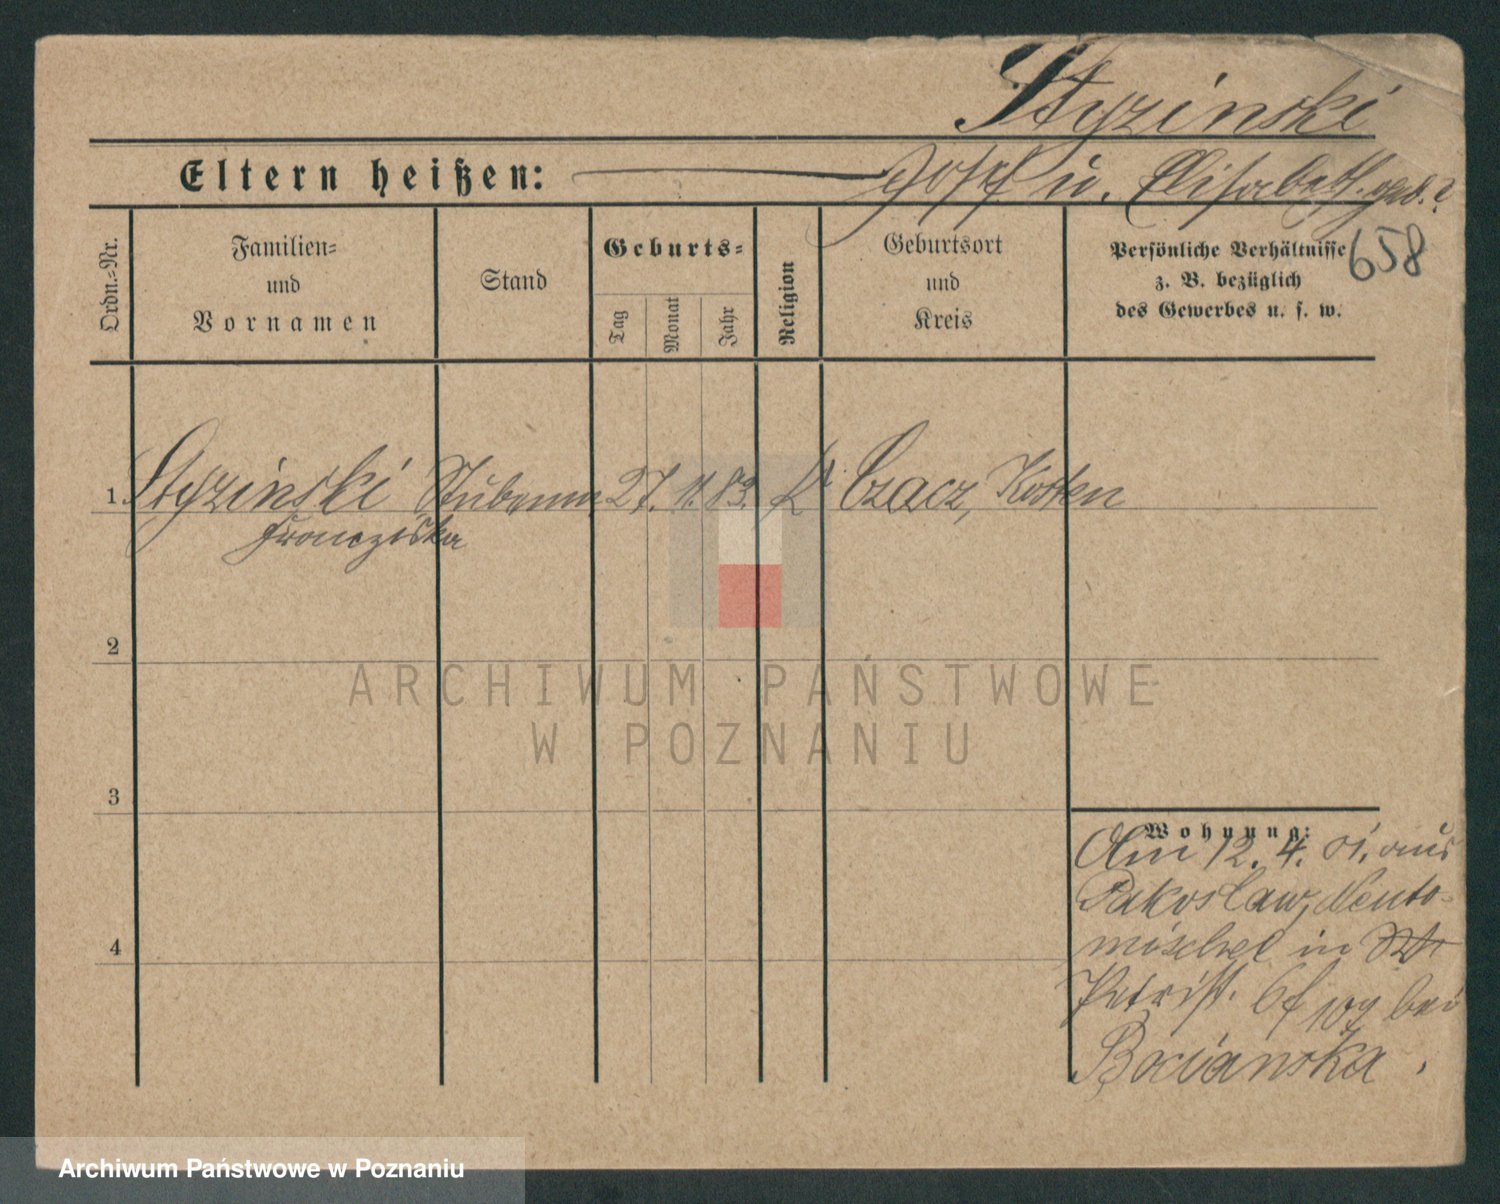 Styzinski
Eltern heißen: Josef u. Elisabeth geb. ?
658
Ordn.-Nr.
Familien-
und
Vornamen
Stand
Geburts-
Tag
Monat
Jahr
Religion
Geburtsort
und
Kreis
Persönliche Verhältnisse
z. B. bezüglich
des Gewerbes u. s. w.
1. Styzinski 27. 11. 83. K Czacz, Kosten
Franziska
2
ARCHIWUM PAŃSTWOWE
W POZNANIU
3
Wohnung:
Am 12. 4. 01. aus
Pakoslaw, Neuto-
mischel in
4
Petrist. bei
Bocianska.
Archiwum Państwowe w Poznaniu